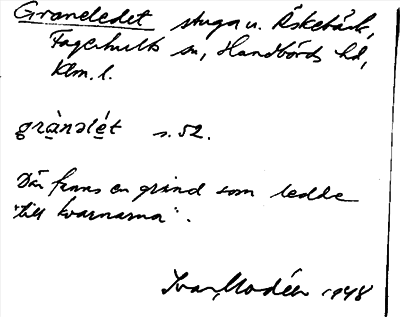 Graneledet stuga u. Äskebäck,
Fagerhults sn, Handbörds hd,
Klm. l.
grànəlét s. 52.
Där fanns en grind som ledde
"till kvarnarna".
Ivar Modéer 1948